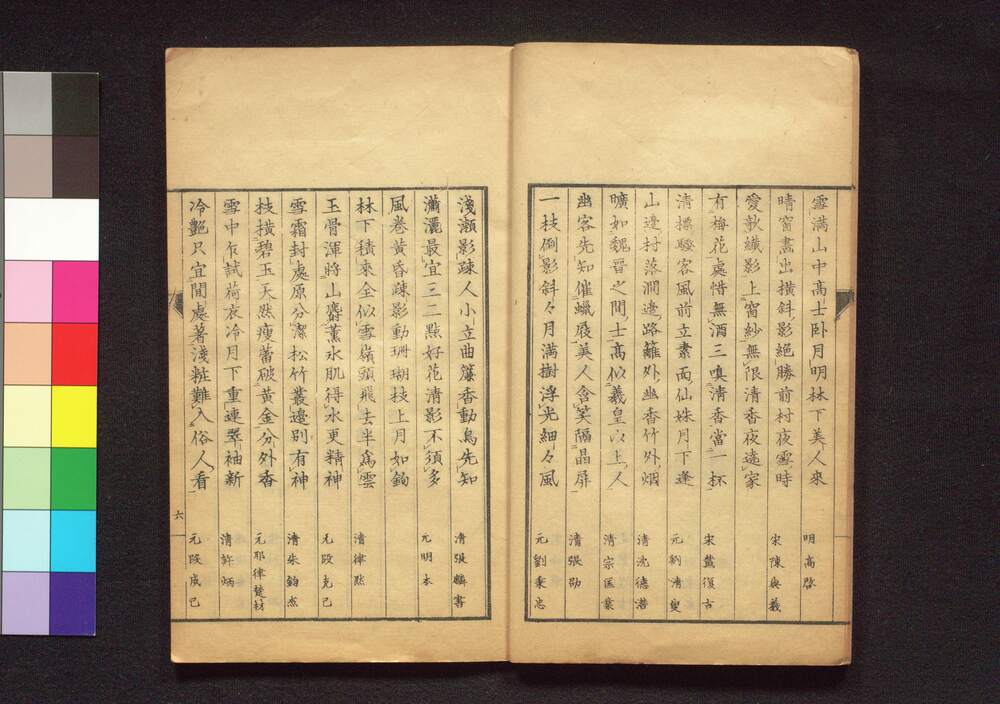 雪満山中高士卧月明林下美人來 明高啓
晴窗畫出横斜影絕勝前村夜雪時 宋陳與義
愛歌纎影上窗紗無限清香夜遶家
有梅花處惜無酒三嗅清香當一杯 宋戴復古
清標驛客風前立素面仙姝月下逢 元劉清叟
山邉村落澗邉路籬外幽香竹外烟 清沈德潜
曠如魏晉之間士高似羲皇以上人 清宗匡業
幽客先知催蠟屐美人含笑隔晶屏 清張劭
一枝倒影斜々月満樹浮光細々風 元劉秉忠
淺瀬影疎人小立曲簾香動鳥先知 清張麟書
瀟灑最宜三二點好花清影不須多 元明本
風卷黄昏疎影動珊瑚枝上月如鉤
林下積來全似雪嶺頭飛去半為雲 清律然
玉骨渾將山麝薫氷肌得水更精神 元段克己
雪霜封處原分潔松竹叢邉別有神 清朱鈞杰
枝横碧玉天然瘦蕾破黄金分外香 元耶律楚材
雪中乍試荷衣冷月下重連翠袖新 清許炳
冷艷只宜間處著淺粧難入俗人看 元段成己
六